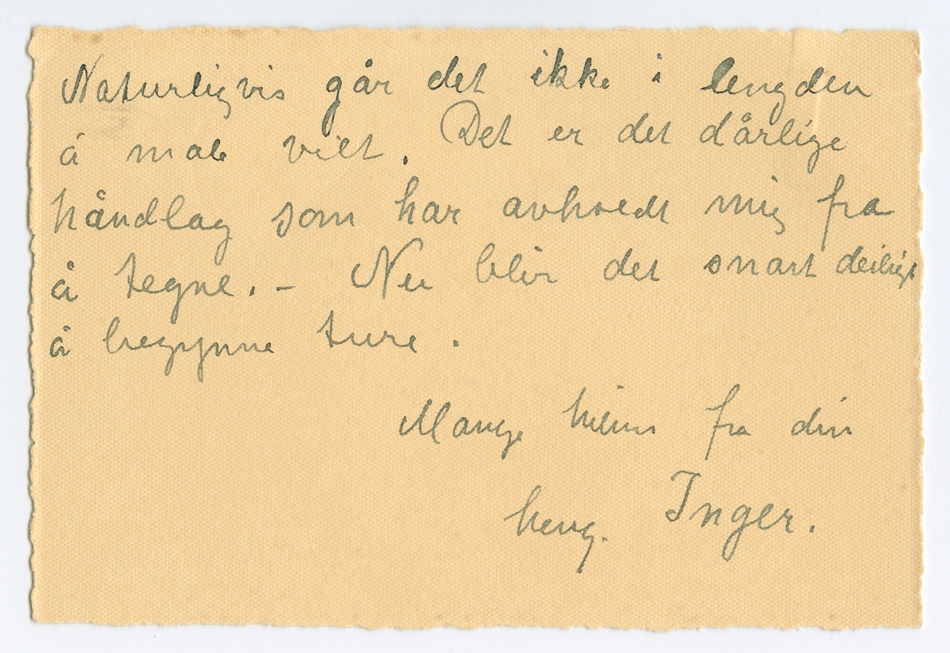 Naturligvis går det ikke i lengden
å male vilt. Det er det dårlige
håndlag som har avholdt mig fra
å tegne. - Nu blir det snart deiligt
å begynne ture.
Mange hilsen fra din
heng. Inger.